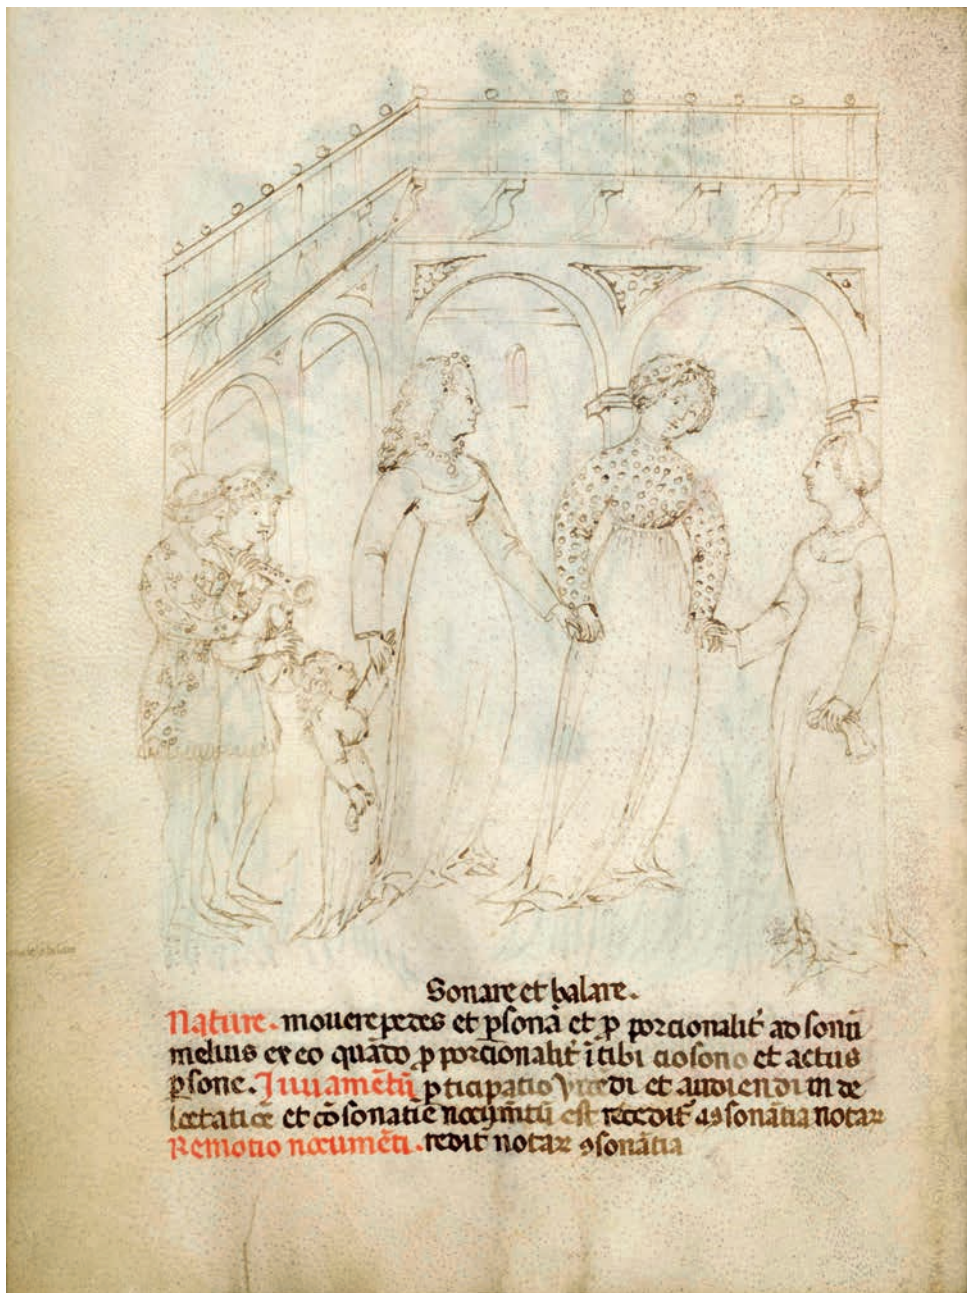 Sonare et balare.
Nature. mouere pedes et ꝑsonā et ꝓporcionalit̄ ad sonū
melius ex eo quādo ꝓporcionalit̄ ītibi cio sono et actus
ꝑsone. Juuamētū ꝑticipatio vidēdi et audiendi in de
lectatiōe et cōsonatiē nocum̄tū est recedit̄ a ꝯsonātia notaꝝ
Remotio nocumēti. redit̄ notaꝝ ꝯsonātia